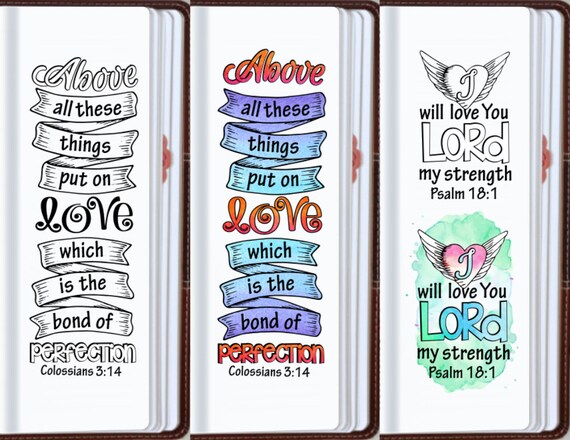 Above
all these
things
put on
LOVE
which
is the
bond of
PERFECTION
Colossians 3:14
Above
all these
things
put on
LOVE
which
is the
bond of
PERFECTION
Colossians 3:14
I
will love You
LORD
my strength
Psalm 18:1
I
will love You
LORD
my strength
Psalm 18:1